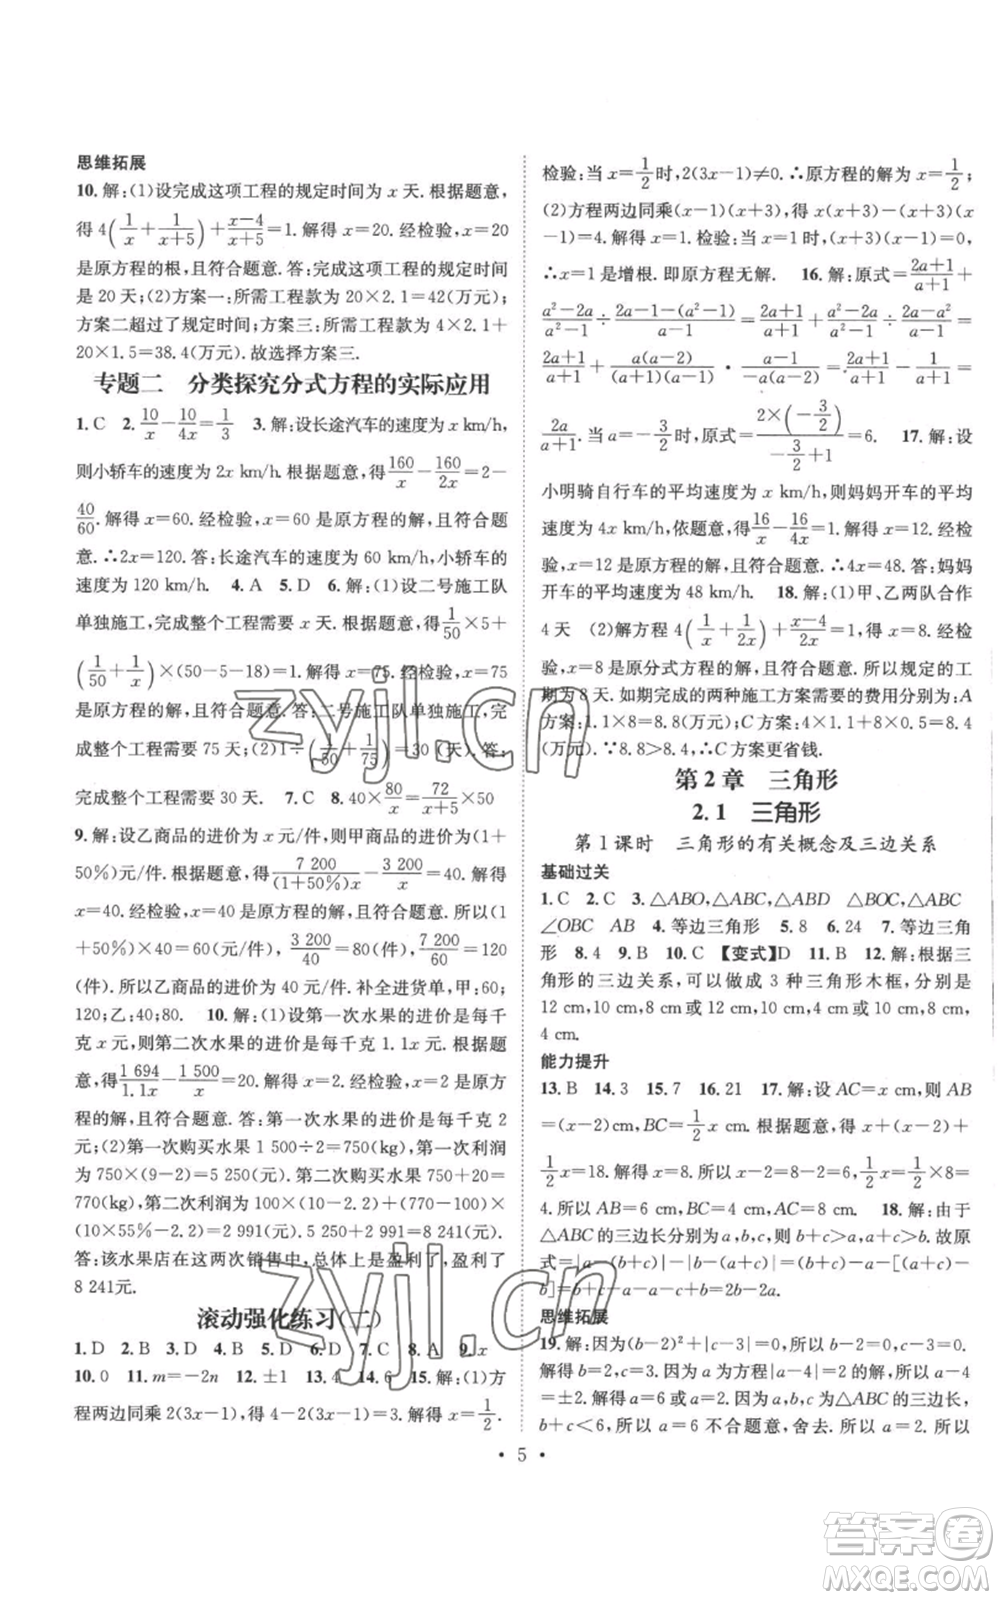 思维拓展
10. 解:(1)设完成这项工程的规定时间为 x 天. 根据题意,
得 4(1/x+1/(x+5))+(x-4)/(x+5)=1. 解得 x=20. 经检验, x=20
是原方程的根,且符合题意. 答:完成这项工程的规定时间
是 20 天;(2)方案一:所需工程款为 20×2.1=42(万元);
方案二超过了规定时间;方案三:所需工程款为 4×2.1+
20×1.5=38.4(万元). 故选择方案三.
专题二 分类探究分式方程的实际应用
1. C 2. 10/x-10/4x=1/3 3. 解:设长途汽车的速度为 x km/h,
则小轿车的速度为 2x km/h. 根据题意,得 160/x-160/2x=2-
40/60. 解得 x=60. 经检验, x=60 是原方程的解,且符合题
意. ∴2x=120. 答:长途汽车的速度为 60 km/h,小轿车的
速度为 120 km/h. 4. A 5. D 6. 解:(1)设二号施工队
单独施工,完成整个工程需要 x 天. 根据题意,得 1/50×5+
(1/50+1/x)×(50-5-18)=1. 解得 x=75. 经检验, x=75
是原方程的解,且符合题意. 答:二号施工队单独施工,完
成整个工程需要 75 天;(2)1÷(1/50+1/75)=30(天). 答:
完成整个工程需要 30 天. 7. C 8. 40×80/x=72/(x+5)×50
9. 解:设乙商品的进价为 x 元/件,则甲商品的进价为(1+
50%)x 元/件. 根据题意,得 7 200/(1+50%)x-3 200/x=40. 解得
x=40. 经检验, x=40 是原方程的解,且符合题意. (1
+50%)×40=60(元/件), 3 200/40=80(件), 7 200/60=120
(件). 所以乙商品的进价为 40 元/件. 补全进货单,甲:60;
120;乙:40;80. 10. 解:(1)设第一次水果的进价是每千
克 x 元,则第二次水果的进价是每千克 1.1x元. 根据题意,得
1 694/1.1x-1 500/x=20. 解得 x=2. 经检验, x=2 是原方
程的解,且符合题意. 答:第一次水果的进价是每千克 2
元;(2)第一次购买水果 1 500÷2=750(kg),第一次利润
为 750×(9-2)=5 250(元). 第二次购买水果 750+20=
770(kg),第二次利润为 100×(10-2.2)+(770-100)×
(10×55%-2.2)=2 991(元). 5 250+2 991=8 241(元).
答:该水果店在这两次销售中,总体上是盈利,盈利了
8 241元.
滚动强化练习(二)
1. D 2. B 3. D 4. B 5. D 6. D 7. C 8. A 9. x
10. 0 11. m=-2n 12. ±1 13. 4 14. 6 15. 解:(1)方
程两边同乘 2(3x-1),得 4-2(3x-1)=3. 解得 x=1/2.
检验:当 x=1/2时,2(3x-1)≠0. ∴原方程的解为 x=1/2;
(2)方程两边同乘(x-1)(x+3),得 x(x+3)-(x+3)(x
-1)=4. 解得 x=1. 检验:当 x=1 时,(x-1)(x+3)=0,
∴x=1 是增根. 即原方程无解. 16. 解:原式=(2a+1)/(a+1)+
(a²-2a)/(a²-1)÷(2a-1-(a²-1))/(a-1)=(2a+1)/(a+1)+(a²-2a)/(a²-1)÷(2a-a²)/(a-1)=
(2a+1)/(a+1)+a(a-2)/(a+1)(a-1)·(a-1)/-a(a-2)=(2a+1)/(a+1)-1/(a+1)=
2a/(a+1). 当 a=-3/2时,原式=2×(-3/2)/(-3/2+1)=6. 17. 解:设
小明骑自行车的平均速度为 x km/h,则妈妈开车的平均
速度为 4x km/h,依题意,得16/x-16/4x=1. 解得 x=12. 经检
验, x=12 是原方程的解,且符合题意. ∴4x=48. 答:妈妈
开车的平均速度为 48 km/h. 18. 解:(1)甲、乙两队合作
4 天 (2)解方程 4(1/x+1/2x)+(x-4)/2x=1. 解得 x=8. 经检
验, x=8 是原分式方程的解,且符合题意. 所以规定的工
期为 8 天. 如期完成的两种施工方案需要的费用分别为:A
方案:1.1×8=8.8(万元);C 方案:4×1.1+8×0.5=8.4
(万元). ∵8.8>8.4,∴C 方案更省钱.
第 2 章 三角形
2.1 三角形
第 1 课时 三角形的有关概念及三边关系
基础过关
1. C 2. C 3. △ABO,△ABC,△ABD △BOC,△ABC
∠OBC AB 4. 等边三角形 5. 8 6. 24 7. 等边三角
形 8. 4 9. B 10. C 【变式】D 11. B 12. 解:根据三
角形的三边关系,可以做成 3 种三角形木框,分别是
12 cm,10 cm,8 cm 或 12 cm,10 cm,4 cm 或 10 cm,8 cm,
4 cm.
能力提升
13. B 14. 3 15. 7 16. 21 17. 解:设 AC=x cm,则 AB
=(x-2)cm,BC=1/2x cm. 根据题意,得 x+(x-2)+
1/2x=18. 解得 x=8. 所以 x-2=8-2=6,1/2x=1/2×8=
4. 所以 AB=6 cm,BC=4 cm,AC=8 cm. 18. 解:由于
△ABC 的三边长分别为 a,b,c,则 b+c>a,a+c>b. 故原
式=|a-(b+c)|-|b-(a+c)|=(b+c)-a-[(a+c)
-b]=b+c-a-a-c+b=2b-2a.
思维拓展
19. 解:因为(b-2)²+|c-3|=0,所以 b-2=0,c-3=0.
解得 b=2,c=3. 因为 a 为方程|a-4|=2 的解,所以 a-4
=±2. 解得 a=6 或 a=2. 因为 a,b,c 为△ABC 的三边长,
b+c<6,所以 a=6 不合题意,舍去. 所以 a=2. 所以
• 5 •
zyjl.cn
zyjl.cn
答案圈
MXQE.COM